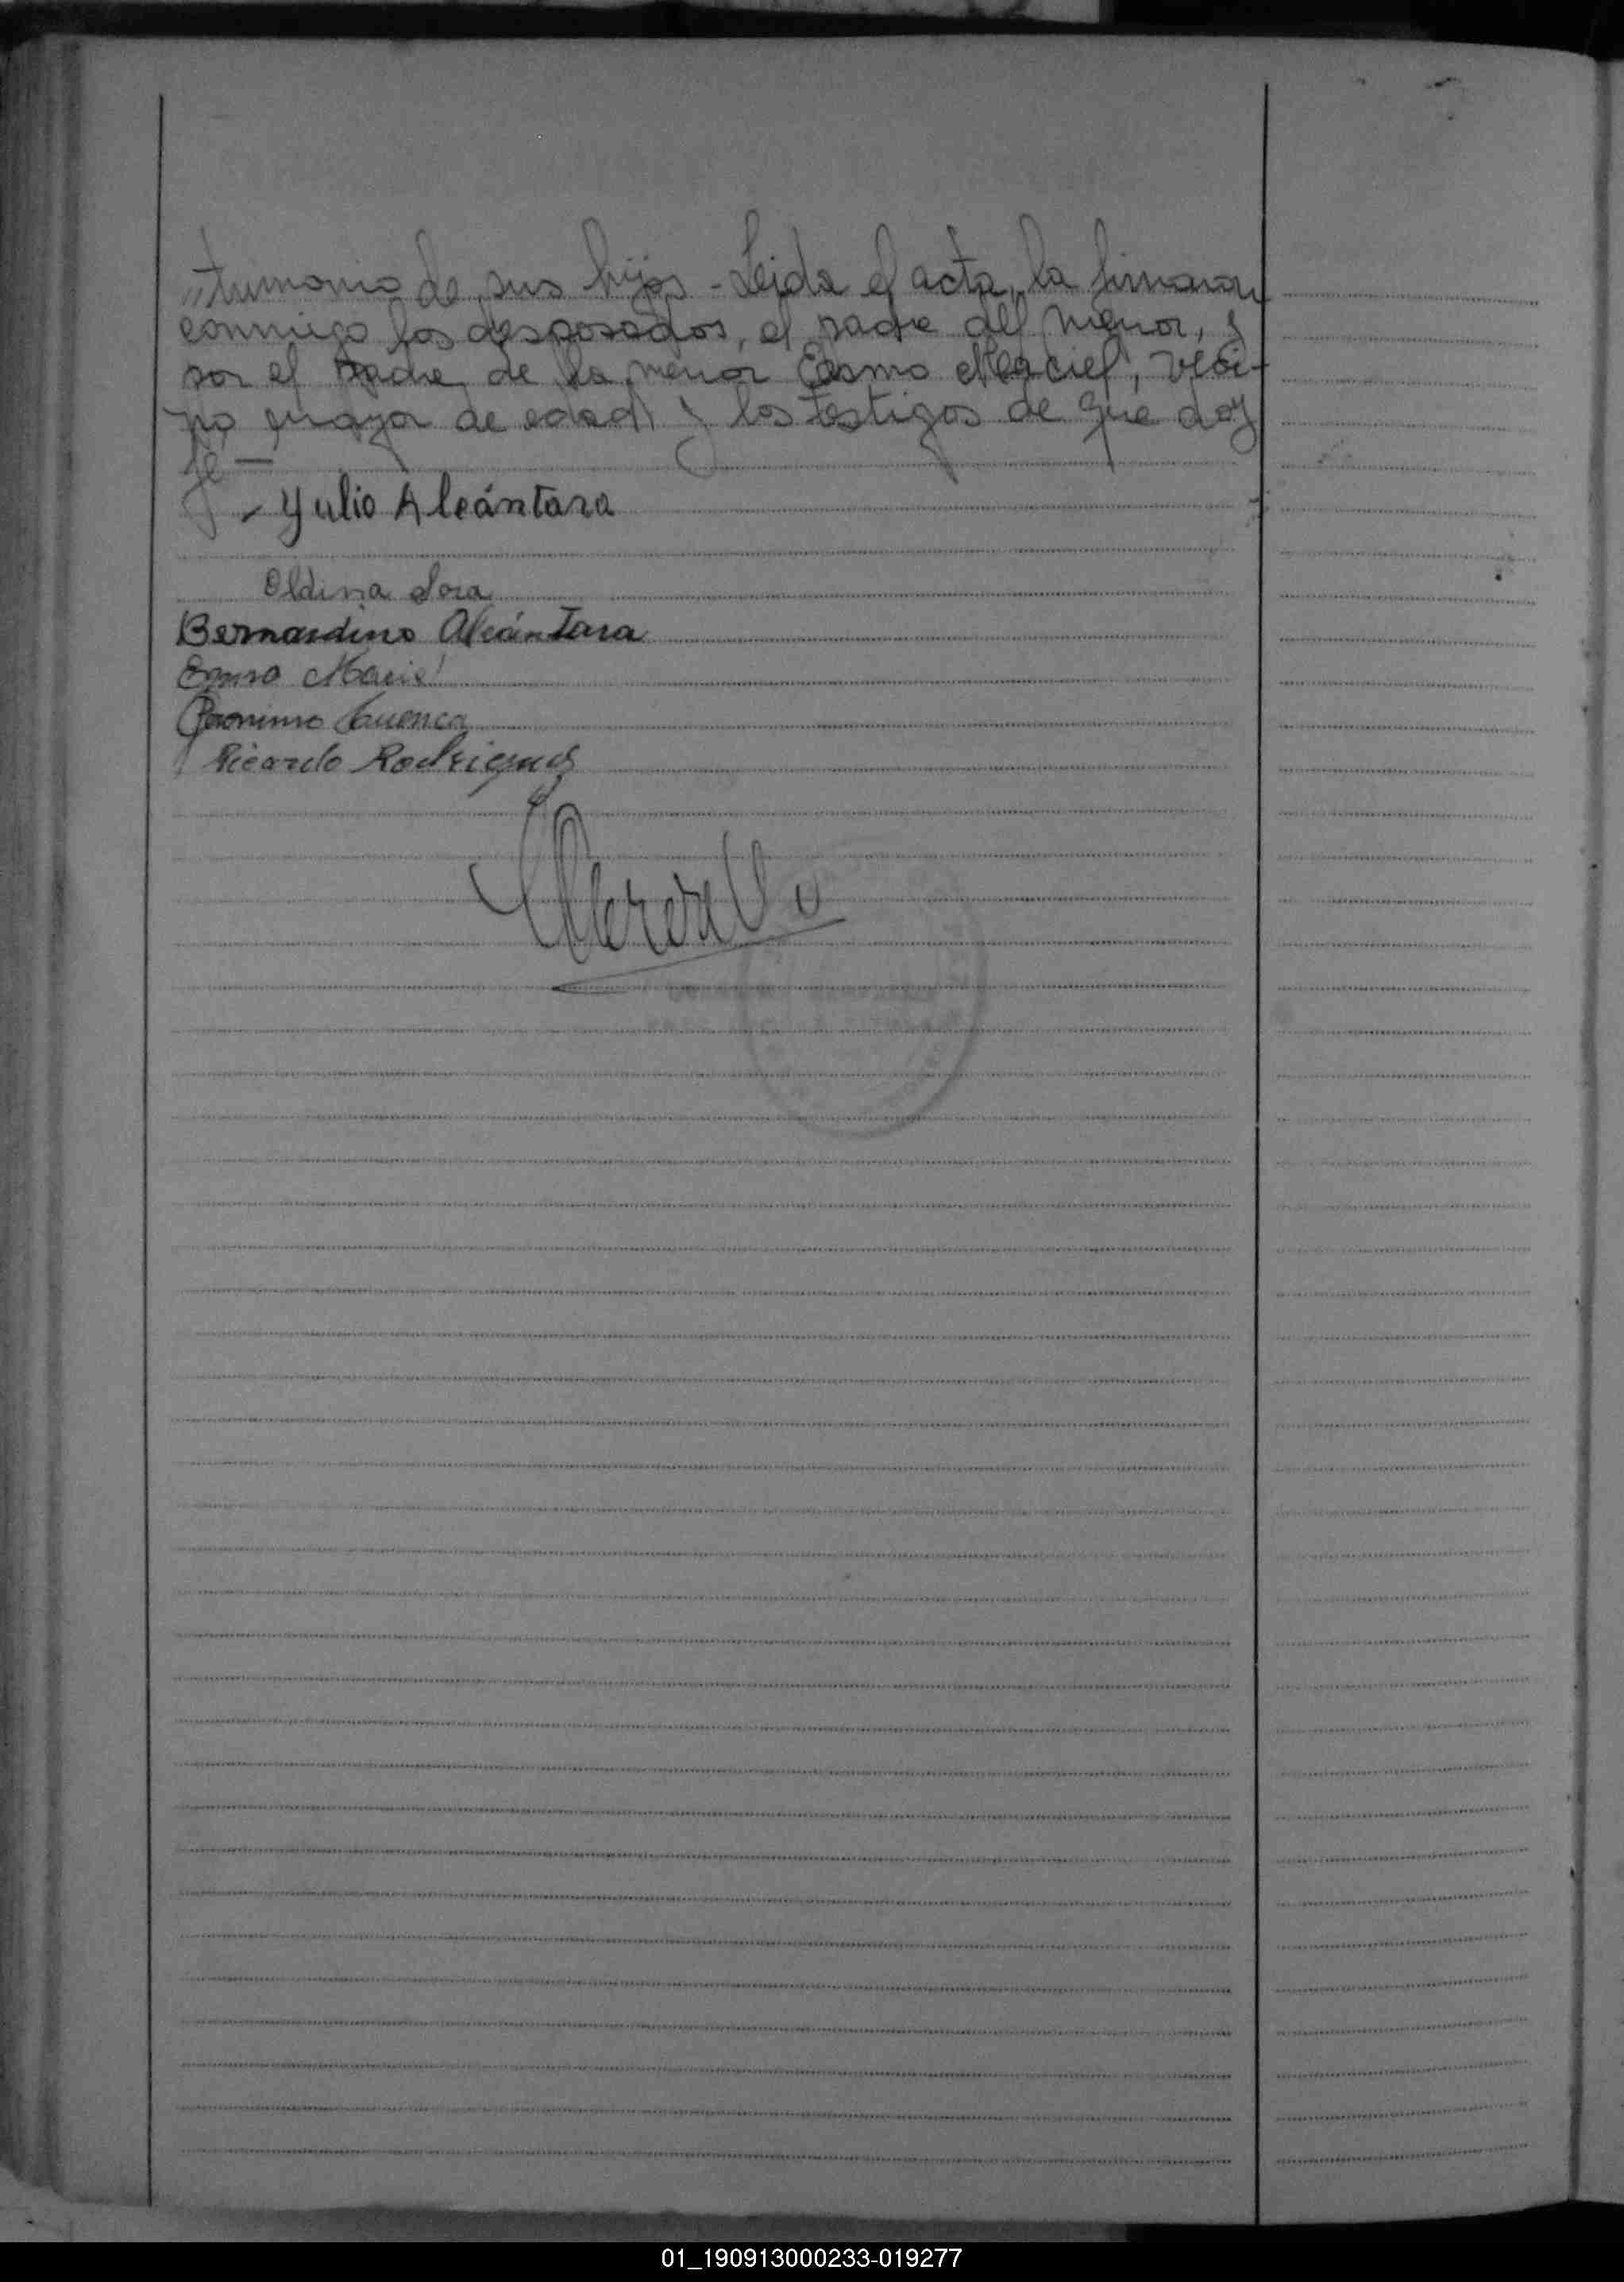 „trimonio de sus hijos - Leida el acta, la firmaron
conmigo los desposados, el padre del menor, y
por el padre de la menor Cosmo Maciel, veci-
no mayor de edad y los testigos de que doy
fe —
- Yulio Alcántara
Oldina Sosa
Bernardino Alcántara
Cosmo Maciel
Geronimo Cuenca
Ricardo Rodriguez
01_190913000233-019277